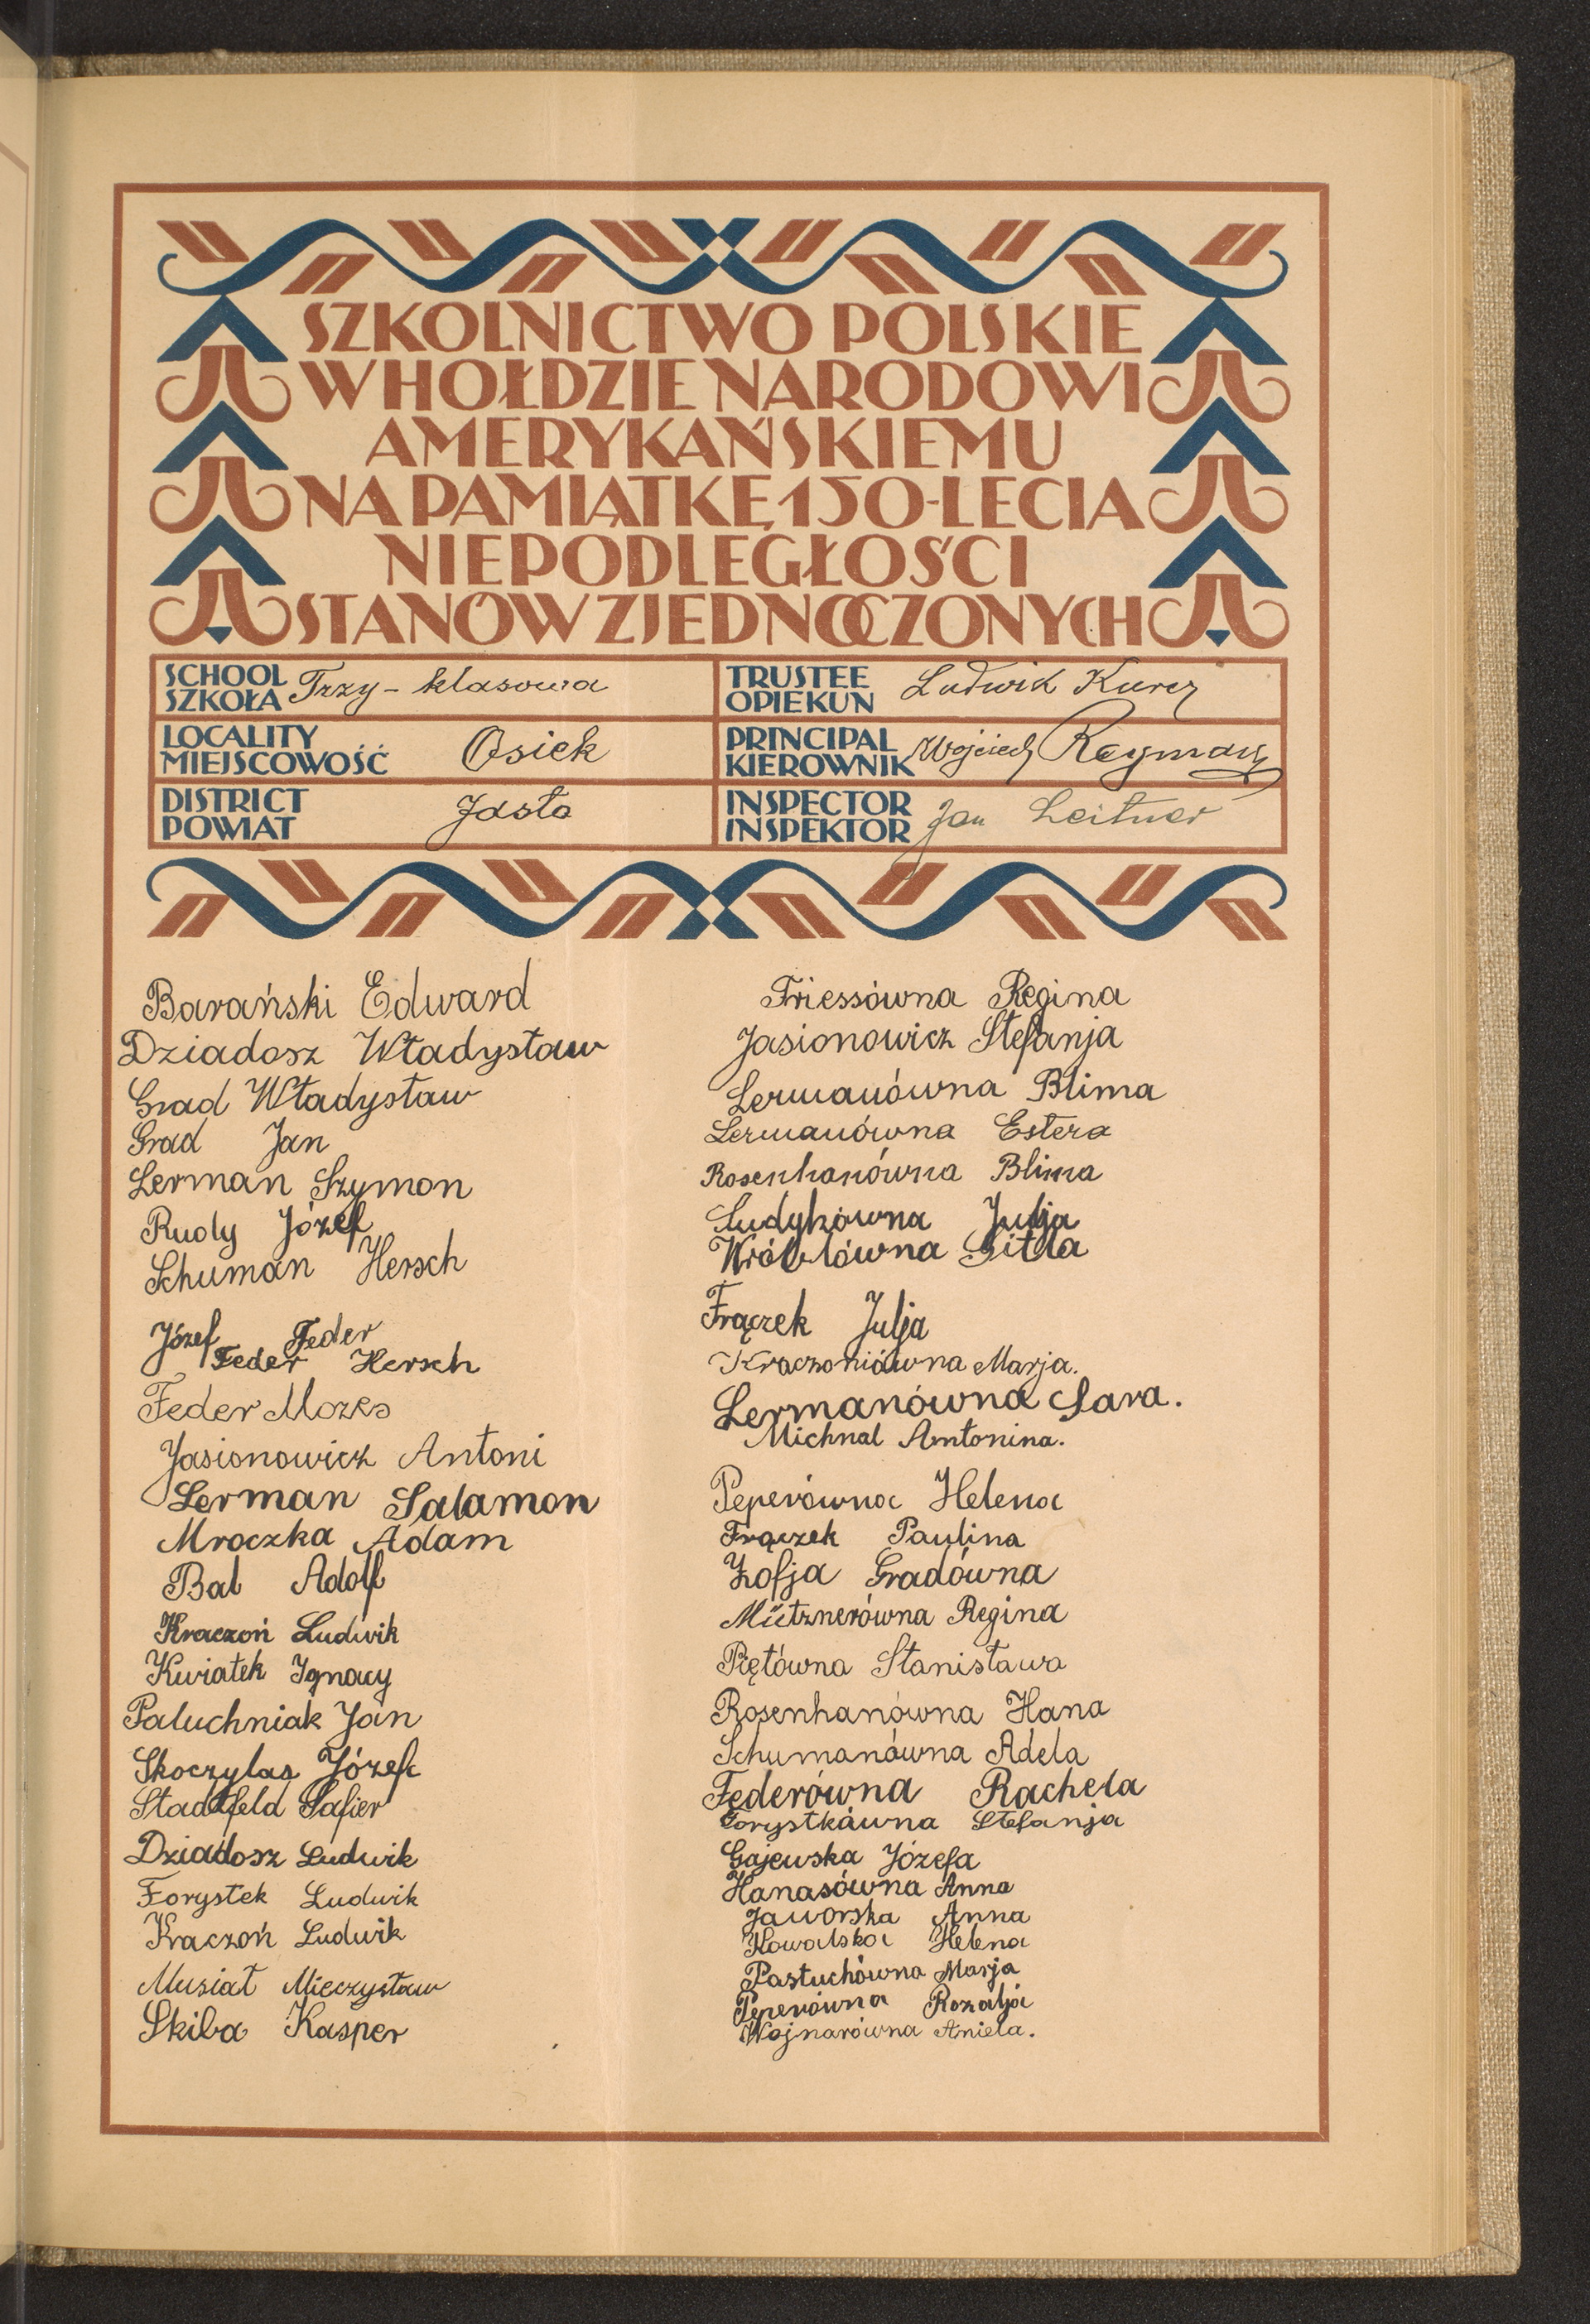 SZKOLNICTWO POLSKIE
W HOŁDZIE NARODOWI
AMERYKAŃSKIEMU
NA PAMIĄTKĘ 150-LECIA
NIEPODLEGŁOŚCI
STANÓW ZJEDNOCZONYCH
SCHOOL
SZKOŁA Trzy-klasowa
LOCALITY
MIEJSCOWOŚĆ Osiek
DISTRICT
POWIAT Jasło
TRUSTEE
OPIEKUN Ludwik Kurcz
PRINCIPAL
KIEROWNIK Wojciech Reyman
INSPECTOR
INSPEKTOR Jan Leitner
Barański Edward
Dziadosz Władysław
Grad Władysław
Grad Jan
Lerman Szymon
Rudy Józef
Schuman Hersch
Józef Feder
Feder Hersch
Feder Mozes
Jasionowicz Antoni
Lerman Salamon
Mroczka Adam
Bal Adolf
Kraczoń Ludwik
Kwiatek Ignacy
Paluchniak Jan
Skoczylas Józef
Stadtfeld Safier
Dziadosz Ludwik
Forystek Ludwik
Kraczoń Ludwik
Musiał Mieczysław
Skiba Kasper
Friessówna Regina
Jasionowicz Stefanja
Lermanówna Blima
Lermanówna Estera
Rosenhanówna Blima
Sudykówna Julja
Wróblówna Gitla
Frączek Julja
Kraczoniówna Marja.
Lermanówna Sara.
Michnal Antonina.
Peperówna Helena
Frączek Paulina
Zofja Gradówna
Mütznerówna Regina
Piętówna Stanisława
Rosenhanówna Hana
Schumanówna Adela
Federówna Rachela
Forystkówna Stefanja
Gajewska Józefa
Hanasówna Anna
Jaworska Anna
Kowalska Helena
Pastuchówna Marja
Peperówna Rozalja
Wojnarówna Aniela.